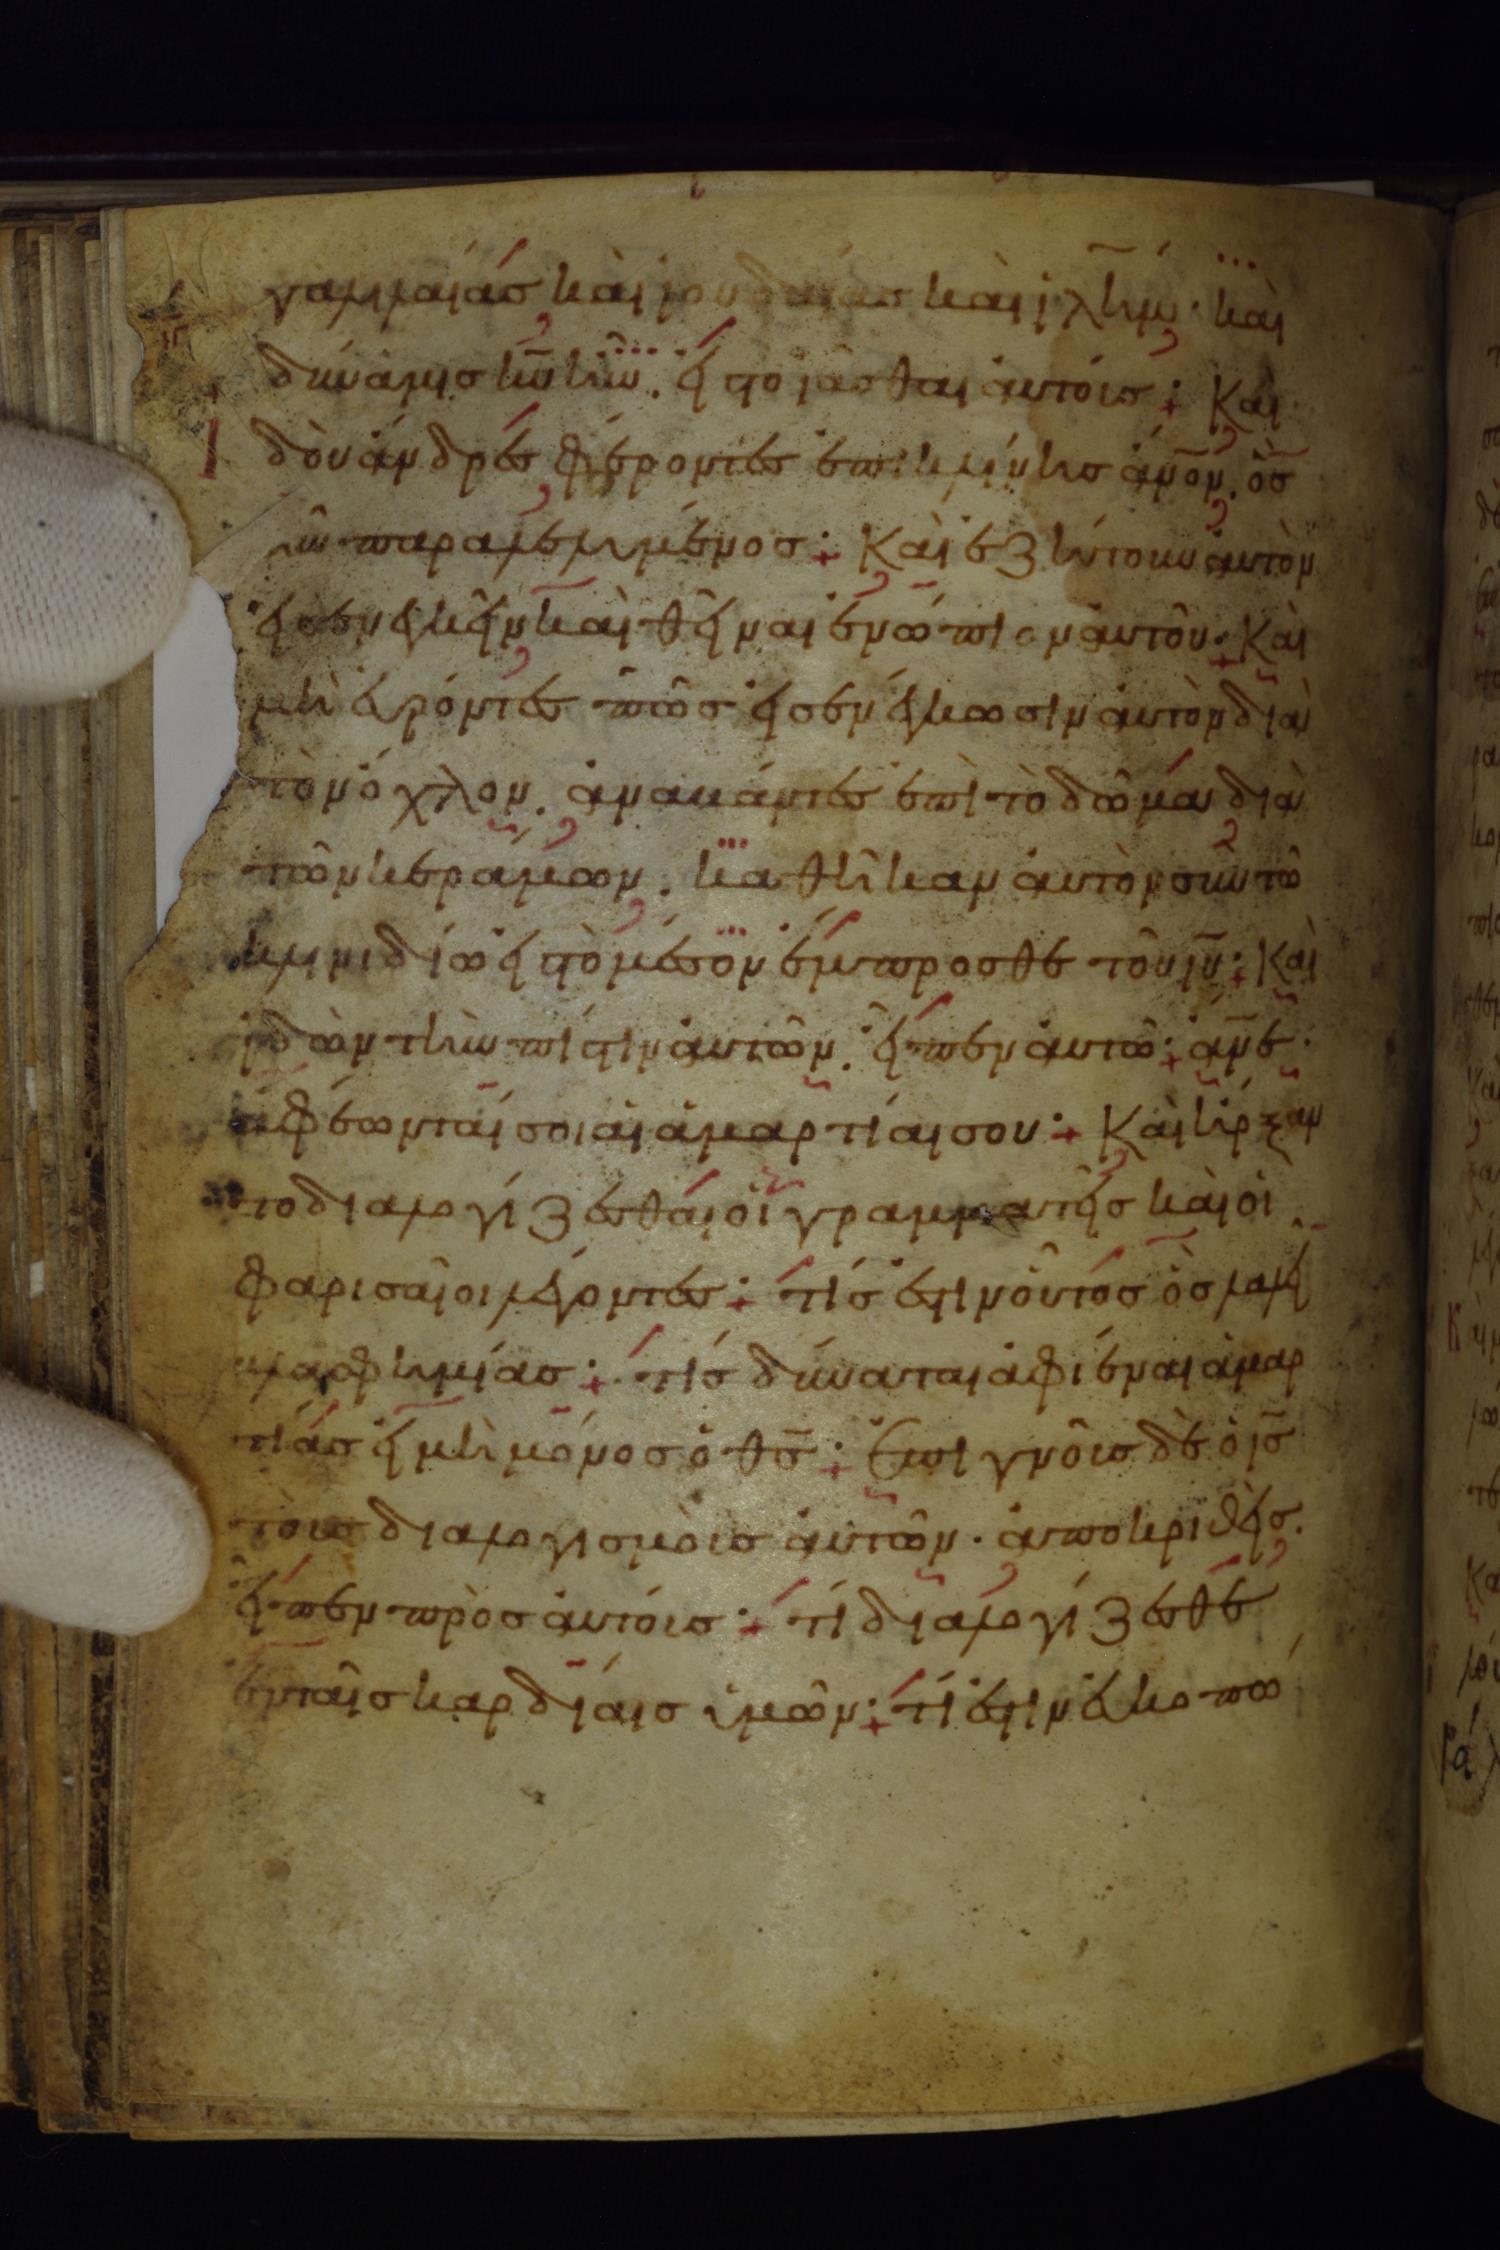 γαλιλαίας καὶ ἰουδαίας καὶ ἰλ̅η̅μ̅· καὶ
δύναμις κ̅υ̅ ἦν. εἰς τὸ ἰᾶσθαι αὐτούς· Καὶ
ἰδοὺ ἄνδρες φέροντες ἐπὶ κλίνης ἄν̅ο̅ν̅. ὃς
ἦν παραλελυμένος· Καὶ ἐζήτουν αὐτὸν
εἰσενεγκεῖν καὶ θεῖναι ἐνώπιον αὐτοῦ· Καὶ
μὴ εὑρόντες πῶς εἰσενέγκωσιν αὐτὸν διὰ
τὸν ὄχλον. ἀναβάντες ἐπὶ τὸ δῶμα διὰ
τῶν κεράμων. καθῆκαν αὐτὸν σὺν τῶ
κλινιδίω εἰς τὸ μέσον ἔμπροσθε τοῦ ι̅υ̅· Καὶ
ἰδὼν τὴν πίστιν αὐτῶν. εἶπεν αὐτῶ· ἄν̅ε̅·
ἀφέωνταί σοι αἱ ἁμαρτίαι σου· Καὶ ἤρξαν
το διαλογίζεσθαι οἱ γραμματεῖς καὶ οἱ
φαρισαῖοι λέγοντες· τίς ἐστιν οὗτος ὃς λαλεῖ
βλασφημίας· τίς δύναται ἀφιέναι ἁμαρ
τίας εἰ μὴ μόνος ὁ θ̅ς̅· Ἐπιγνοὺς δὲ ὁ ι̅ς̅
τοὺς διαλογισμοὺς αὐτῶν· ἀποκριθεὶς.
εἶπεν πρὸς αὐτούς· τί διαλογίζεσθε
ἐν ταῖς καρδίαις ὑμῶν· τί ἐστιν εὐκοπώ